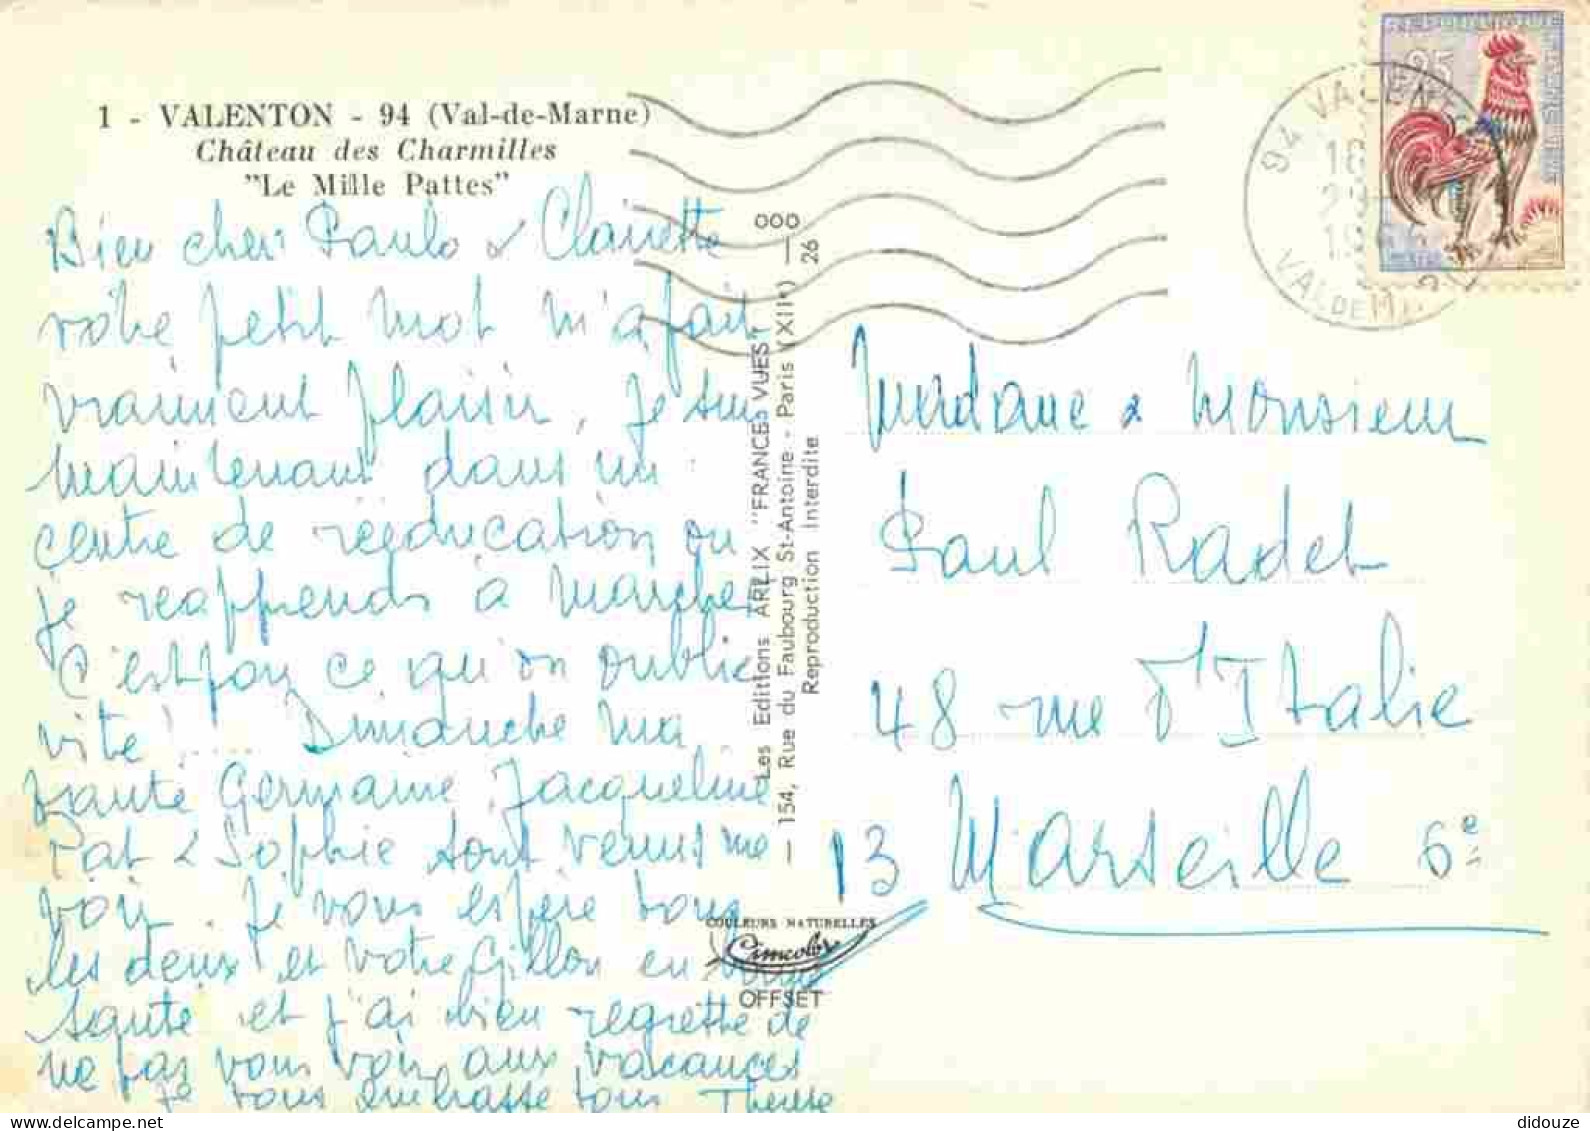 1 - VALENTON - 94 (Val-de-Marne)
Château des Charmilles
"Le Mille Pattes"
Bien cher Paulo & Clairette
votre petit mot m'a fait
vraiment plaisir, je suis
maintenant dans un
centre de rééducation ou
je réapprends à marcher
C'est fou ce qu'on oublie
vite! Dimanche ma
tante Germaine, Jacqueline
Pat & Sophie sont venus me
voir. Je vous espère tous
les deux et votre Gillou en bonne
santé et j'ai bien regretté de
ne pas vous voir aux vacances
Je vous embrasse tous Thérèse
000
26
Les Editions ARLIX "FRANCE VUES"
154, Rue du Faubourg St-Antoine - Paris (XIIe)
Reproduction Interdite
COULEURS NATURELLES
Cimcolor
OFFSET
25
94 VALENTON
VAL DE MARNE
Madame & Monsieur
Paul Radet
48 rue d'Italie
13 Marseille 6e
delcampe.net
didouze